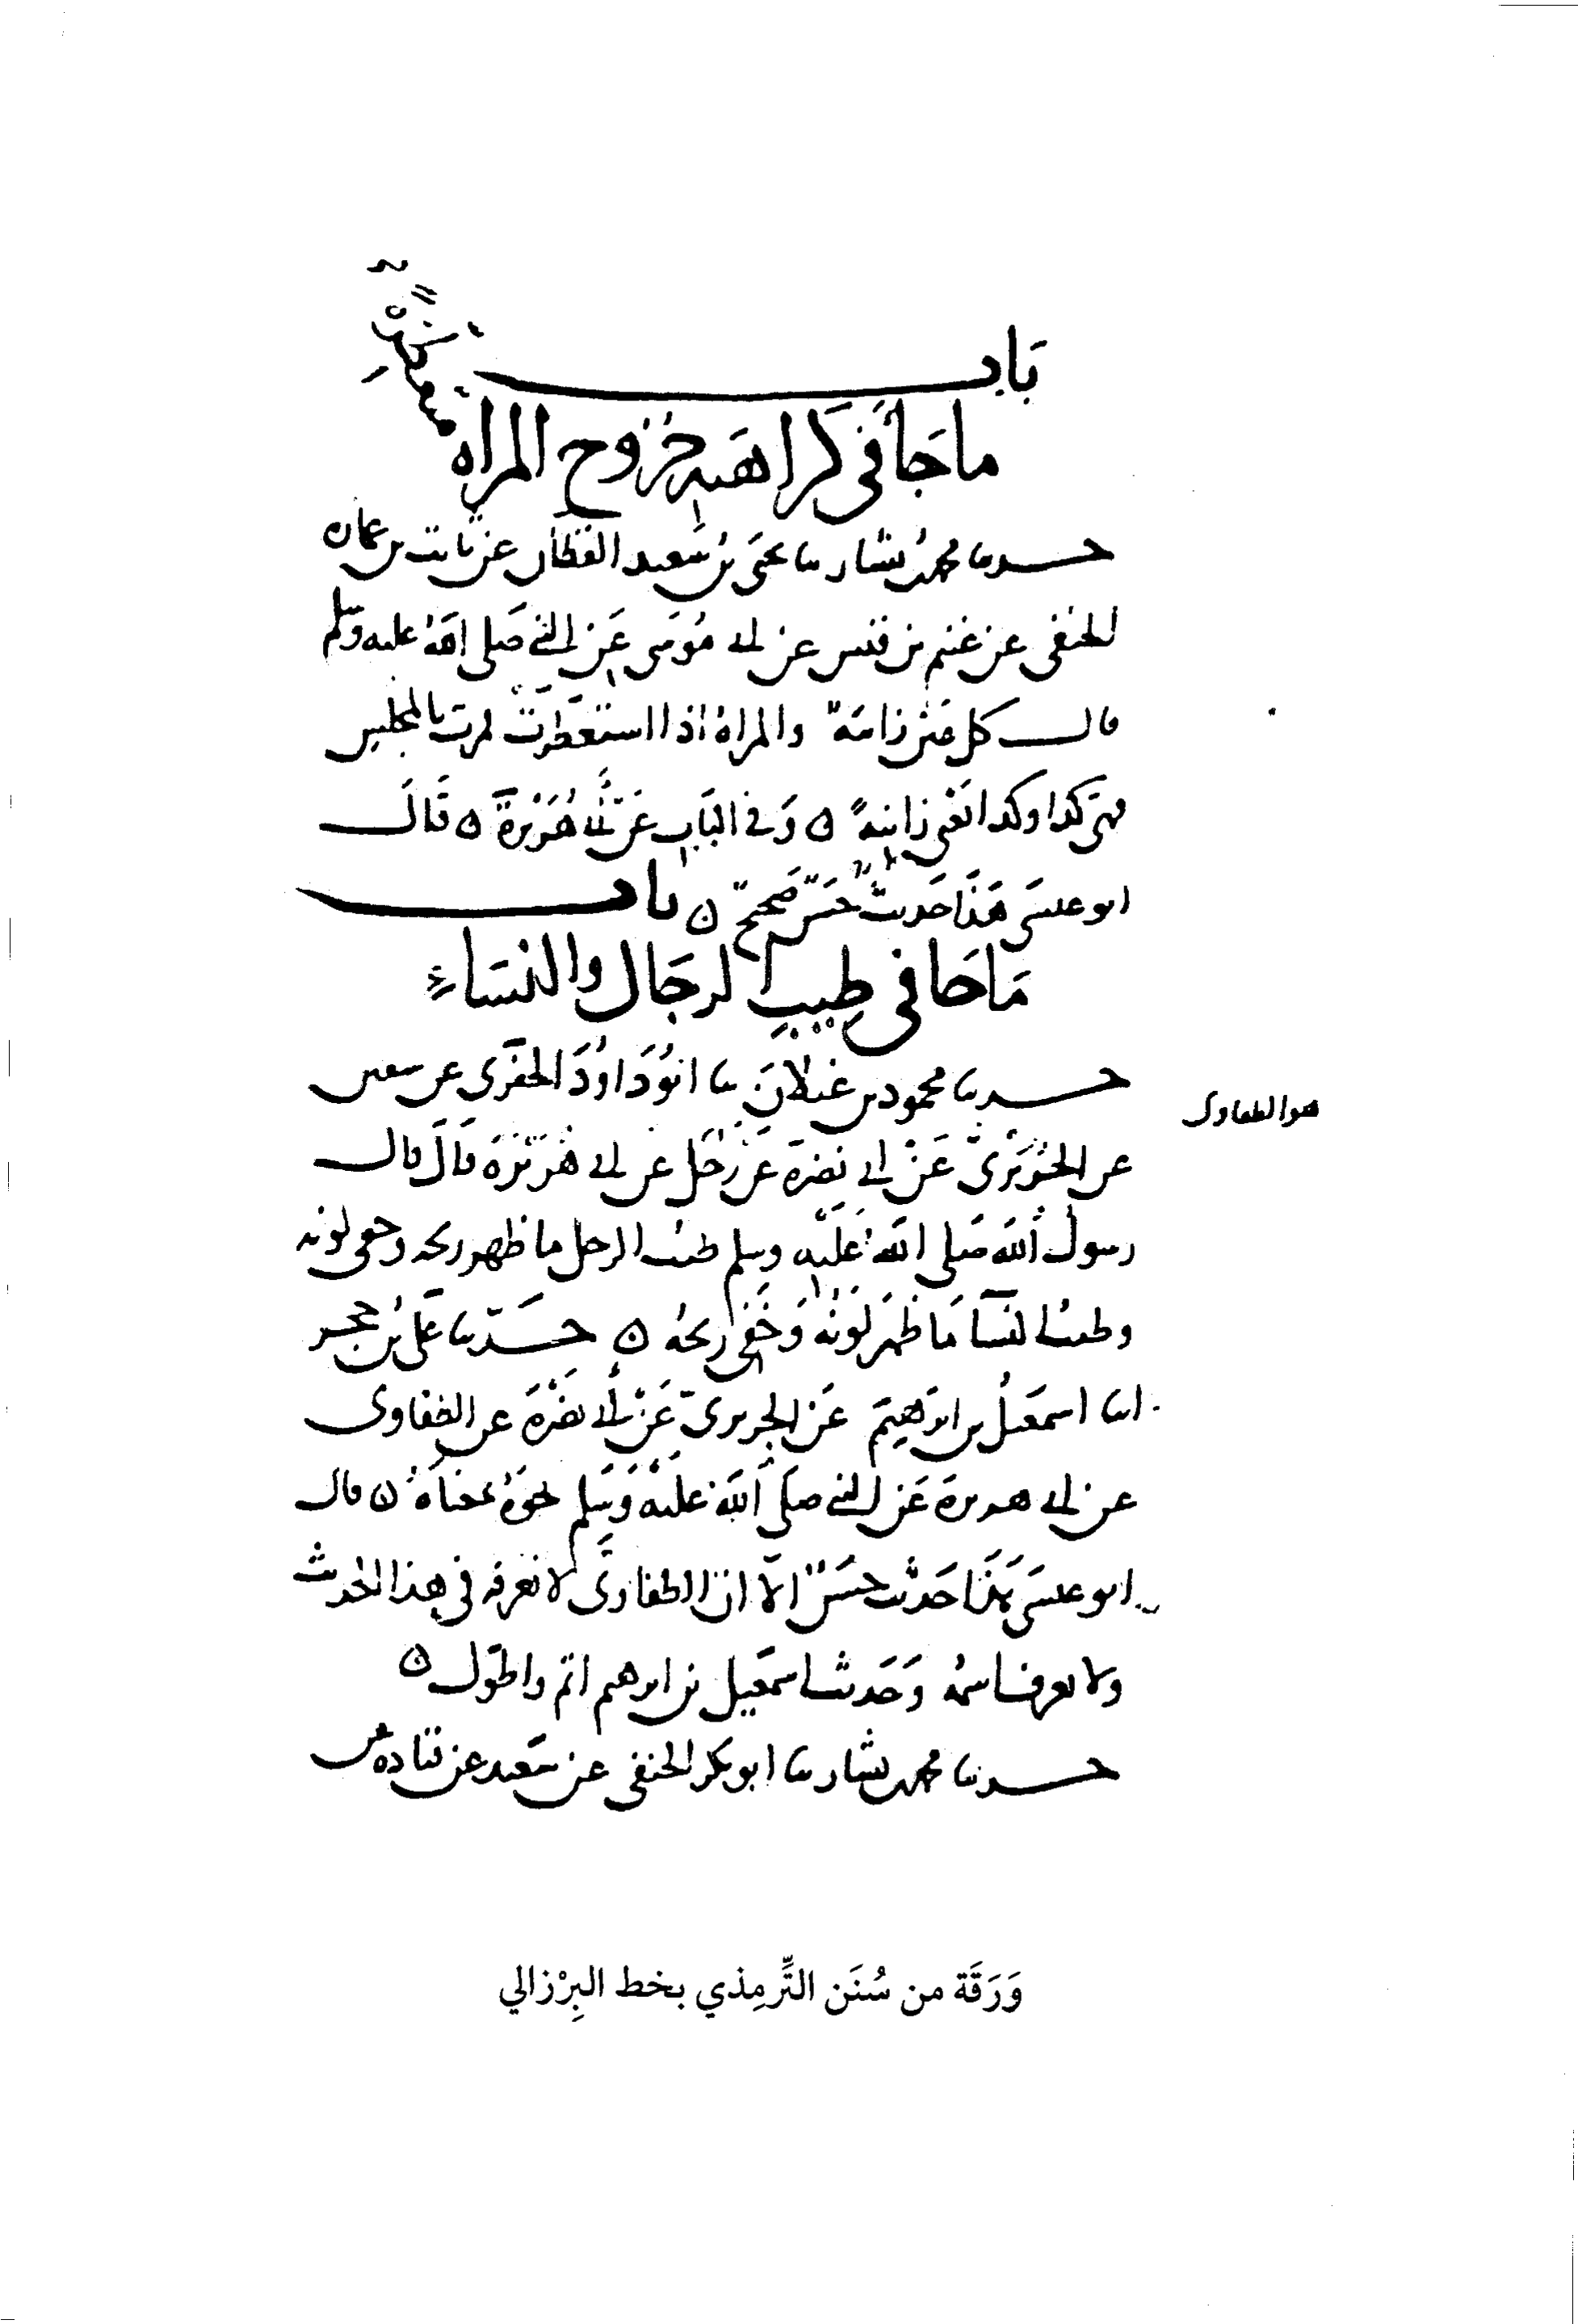 باب
ما جا في كراهيه خروج المراه
متعطرة
حدثنا محمد بن بشار ثنا يحيى بن سعيد القطان عن ثابت بن عماره
الحنفي عن غنيم بن قيس عن ابي موسى عن النبي صلى الله عليه وسلم
قال كل عين زانية والمراة اذا استعطرت فمرت بالمجلس
فهي كذا وكذا يعني زانية ه وفي الباب عن ابي هريرة ه قال
ابو عيسى هذا حديث حسن صحيح ه باب
ما جا في طيب الرجال والنساء
حدثنا محمود بن غيلان ثنا ابو داود الحفري عن سفين
هو الطفاوى
عن الجريري عن ابي نضرة عن رجل عن ابي هريرة قال قال
رسول الله صلى الله عليه وسلم طيب الرجل ما ظهر ريحه وخفي لونه
وطيب النسا ما ظهر لونه وخفي ريحه ه حدثنا علي بن حجر
انا اسمعيل بن ابرهيم عن الجريري عن ابي نضرة عن الطفاوى
عن ابي هريرة عن النبي صلى الله عليه وسلم نحوه بمعناه ه قال
ابو عيسى هذا حديث حسن الا ان الطفاوى لا نعرفه في هذا الحديث
ولا يعرف اسمه وحديث اسمعيل بن ابرهيم اتم واطول ه
حدثنا محمد بن بشار ثنا ابو بكر الحنفي عن سعيد عن قتاده عن
وَرَقَة من سُنَن التِّرمِذي بخط البِرْزالي